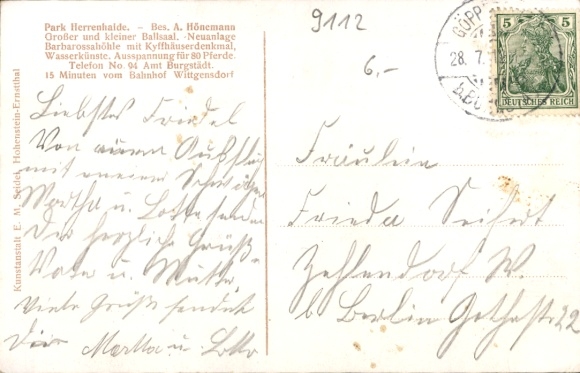 Park Herrenhaide. – Bes. A. Hönemann
Großer und kleiner Ballsaal. -Neuanlage
Barbarossahöhle mit Kyffhäuserdenkmal,
Wasserkünste. Ausspannung für 80 Pferde.
Telefon No. 94 Amt Burgstädt.
15 Minuten vom Bahnhof Wittgensdorf
Kunstanstalt E. M. Seidel, Hohenstein-Ernstthal
9112
6,-
GÖPP
28. 7.
5 5
DEUTSCHES REICH
Liebstes Friedel
Von Ausflug
mit unseren
Martha u. Lotte senden
Dir herzliche Grüße
Vater u. Mutter
Viele Grüße sendet
Dir Martha u. Lotte
Fräulein
Frieda Seifert
Zehlendorf W.
b. Berlin Gothastr 22